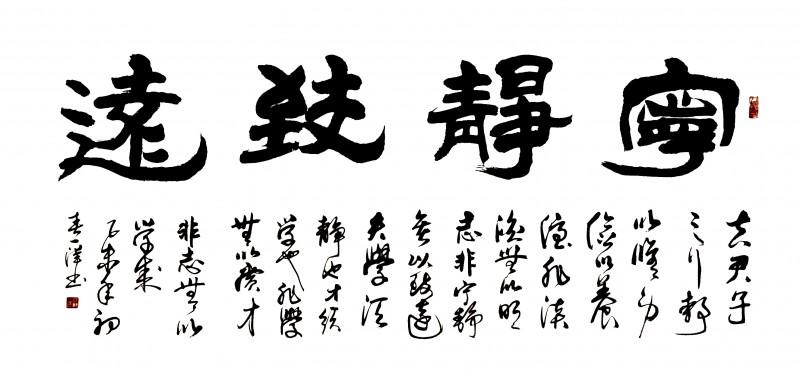 寧靜致遠
夫君子
之行靜
以修身
儉以養
德非淡
泊無以明
志非宁静
無以致遠
夫學須
静也才須
学也非學
無以廣才
非志無以
學成
未年初
春洋书